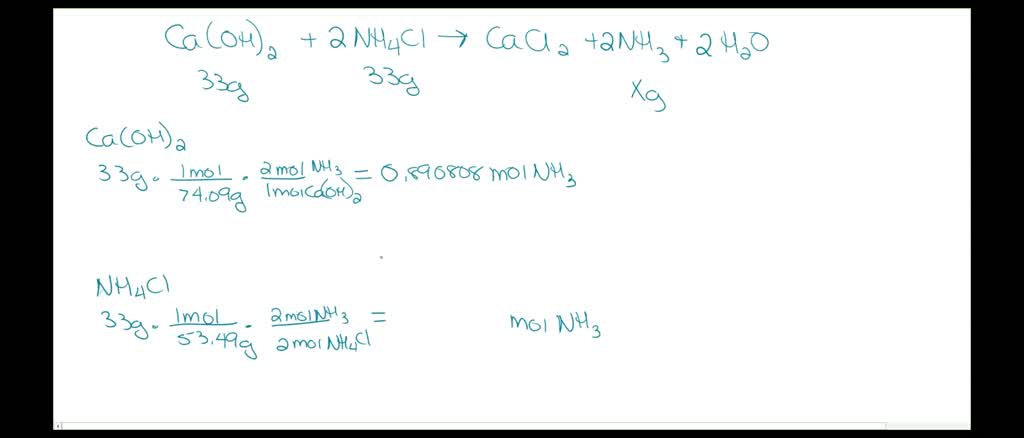 Ca(OH)₂ + 2NH₄Cl → CaCl₂ + 2NH₃ + 2H₂O
33g 33g Xg
Ca(OH)₂
33g · 1mol/74.09g · 2mol NH₃/1mol Ca(OH)₂ = 0.890808 mol NH₃
NH₄Cl
33g · 1mol/53.49g · 2mol NH₃/2mol NH₄Cl = mol NH₃